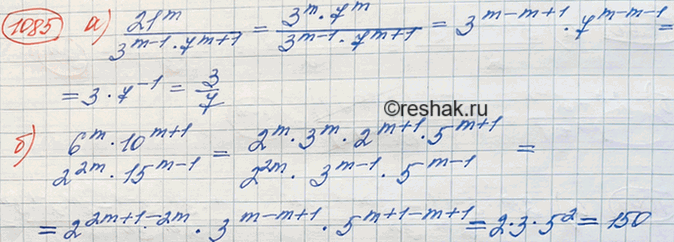 1085 а) 21^m / (3^(m-1) · 7^(m+1)) = (3^m · 7^m) / (3^(m-1) · 7^(m+1)) = 3^(m-m+1) · 7^(m-m-1) =
= 3 · 7^(-1) = 3/7
©reshak.ru
б) (6^m · 10^(m+1)) / (2^(2m) · 15^(m-1)) = (2^m · 3^m · 2^(m+1) · 5^(m+1)) / (2^(2m) · 3^(m-1) · 5^(m-1)) =
= 2^(2m+1-2m) · 3^(m-m+1) · 5^(m+1-m+1) = 2 · 3 · 5^2 = 150